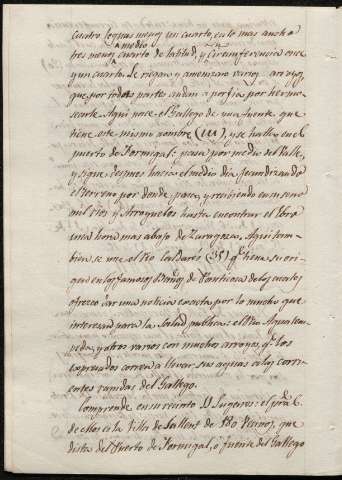 cuatro leguas menos un cuarto, en lo mas ancho
a medio
tres menos cuarto de latitud, y en circumferencia once
y un cuarto. Le riegan y amenizan varios arroyos,
que por todas partes andan a porfia por hermo-
searle. Aqui nace el Gallego de una fuente que
tiene este mismo nombre (III), y se halla en el
puerto de Formigal: pasa por medio del Valle,
y sigue despues hacia el medio dia fecundizando
el terreno por donde pasa, y recibiendo en su seno
mil rios y Arroyuelos hasta encontrar el Ebro
una hora mas abajo de Zaragoza. Aqui tam-
bien se ve el Rio Caldarés (35) qe. tiene su ori-
gen en los famosos Baños de Panticosa de los cuales
ofrezco dar una noticia exacta por lo mucho que
interesan para la Salud publica: el Rio Aqualem-
peda, y otros varios con muchos arroyos, qe. los
expresados corren a llevar sus aguas a las corri-
entes rapidas del Gallego.
Comprende en su recinto 11 Lugares: el pral.
de ellos es la Villa de Sallent de 130 Vecinos, que
dista del Puerto de Formigal, o fuente del Gallego